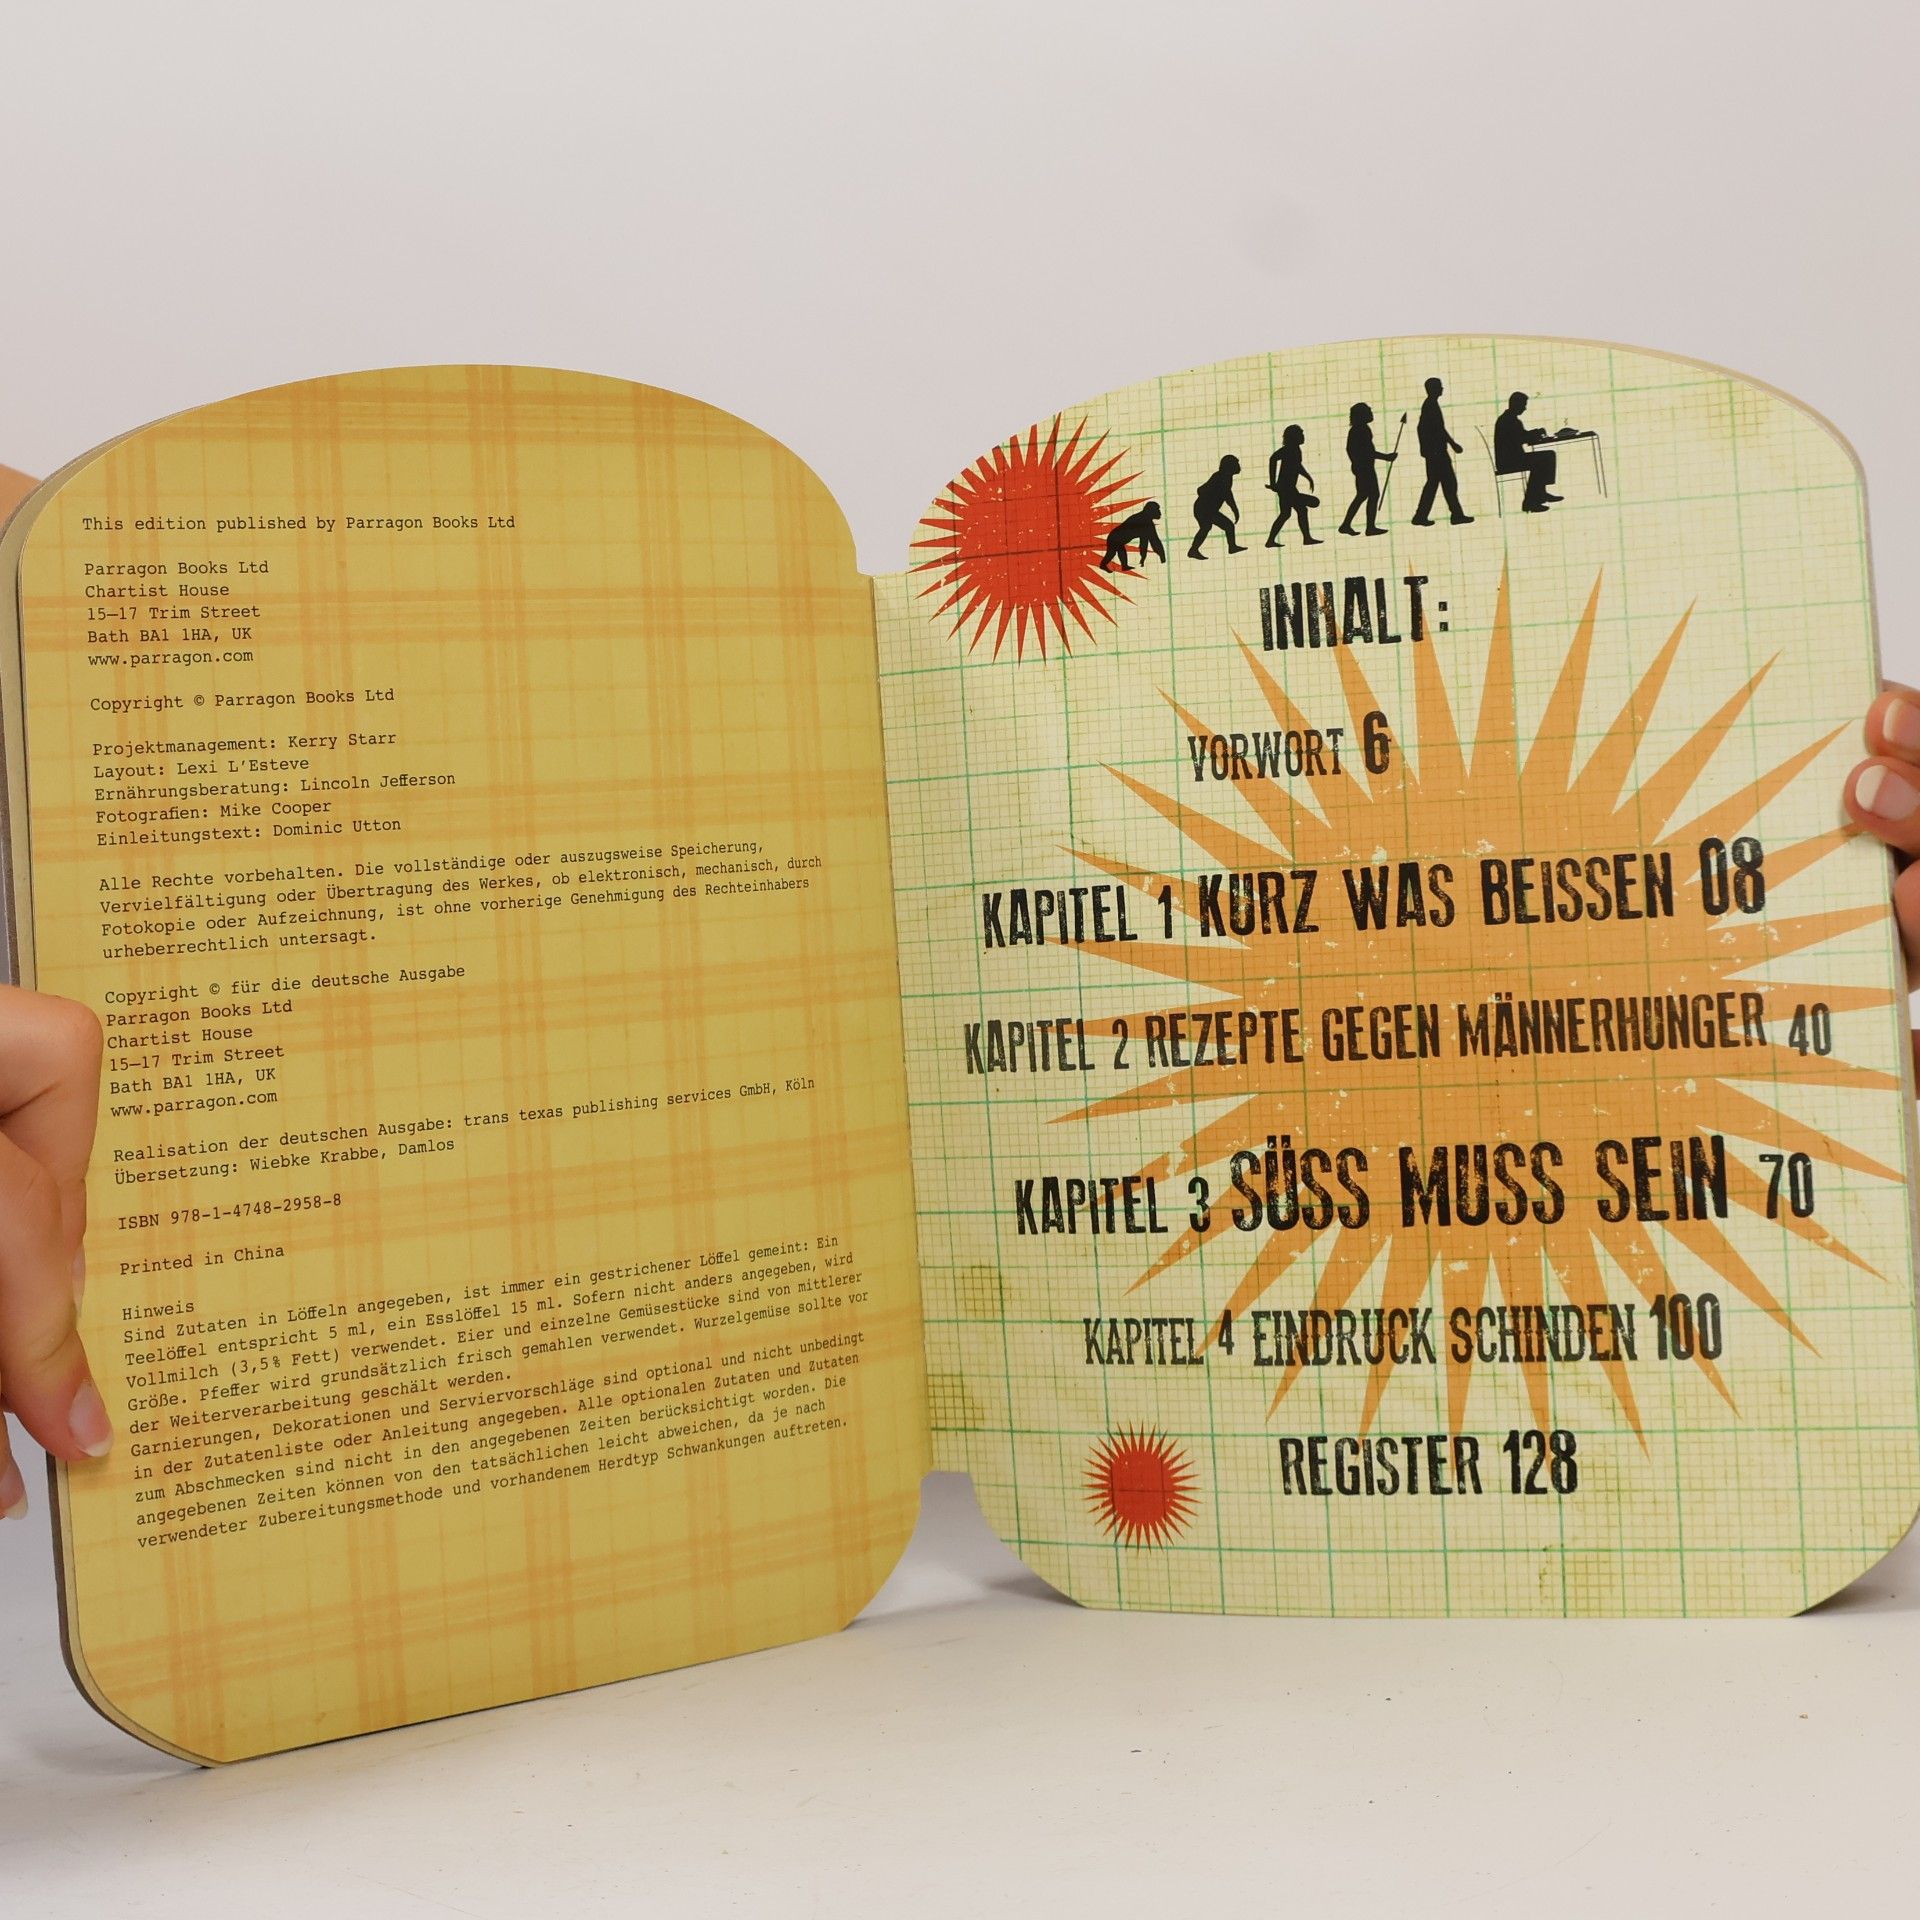 This edition published by Parragon Books Ltd
Parragon Books Ltd
Chartist House
15–17 Trim Street
Bath BA1 1HA, UK
www.parragon.com
Copyright © Parragon Books Ltd
Projektmanagement: Kerry Starr
Layout: Lexi L'Esteve
Ernährungsberatung: Lincoln Jefferson
Fotografien: Mike Cooper
Einleitungstext: Dominic Utton
Alle Rechte vorbehalten. Die vollständige oder auszugsweise Speicherung,
Vervielfältigung oder Übertragung des Werkes, ob elektronisch, mechanisch, durch
Fotokopie oder Aufzeichnung, ist ohne vorherige Genehmigung des Rechteinhabers
urheberrechtlich untersagt.
Copyright © für die deutsche Ausgabe
Parragon Books Ltd
Chartist House
15–17 Trim Street
Bath BA1 1HA, UK
www.parragon.com
Realisation der deutschen Ausgabe: trans texas publishing services GmbH, Köln
Übersetzung: Wiebke Krabbe, Damlos
ISBN 978-1-4748-2958-8
Printed in China
Hinweis
Sind Zutaten in Löffeln angegeben, ist immer ein gestrichener Löffel gemeint: Ein
Teelöffel entspricht 5 ml, ein Esslöffel 15 ml. Sofern nicht anders angegeben, wird
Vollmilch (3,5% Fett) verwendet. Eier und einzelne Gemüsestücke sind von mittlerer
Größe. Pfeffer wird grundsätzlich frisch gemahlen verwendet. Wurzelgemüse sollte vor
der Weiterverarbeitung geschält werden.
Garnierungen, Dekorationen und Serviervorschläge sind optional und nicht unbedingt
in der Zutatenliste oder Anleitung angegeben. Alle optionalen Zutaten und Zutaten
zum Abschmecken sind nicht in den angegebenen Zeiten berücksichtigt worden. Die
angegebenen Zeiten können von den tatsächlichen leicht abweichen, da je nach
verwendeter Zubereitungsmethode und vorhandenem Herdtyp Schwankungen auftreten.
INHALT:
VORWORT 6
KAPITEL 1 KURZ WAS BEISSEN 08
KAPITEL 2 REZEPTE GEGEN MÄNNERHUNGER 40
KAPITEL 3 SÜSS MUSS SEIN 70
KAPITEL 4 EINDRUCK SCHINDEN 100
REGISTER 128